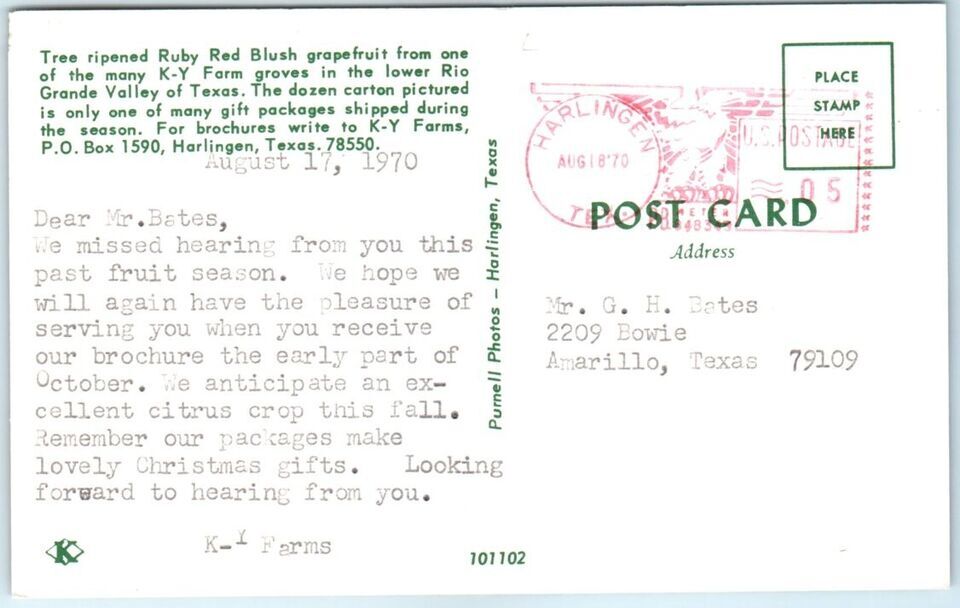 Tree ripened Ruby Red Blush grapefruit from one
of the many K-Y Farm groves in the lower Rio
Grande Valley of Texas. The dozen carton pictured
is only one of many gift packages shipped during
the season. For brochures write to K-Y Farms,
P.O. Box 1590, Harlingen, Texas. 78550.
August 17, 1970
Dear Mr.Bates,
We missed hearing from you this
past fruit season. We hope we
will again have the pleasure of
serving you when you receive
our brochure the early part of
October. We anticipate an ex-
cellent citrus crop this fall.
Remember our packages make
lovely Christmas gifts. Looking
forward to hearing from you.
K-Y Farms
K
101102
Purnell Photos – Harlingen, Texas
HARLINGEN
AUG18'70
TEX.
U.S.POSTAGE
05
METER
PLACE
STAMP
HERE
POST CARD
Address
Mr. G. H. Bates
2209 Bowie
Amarillo, Texas 79109